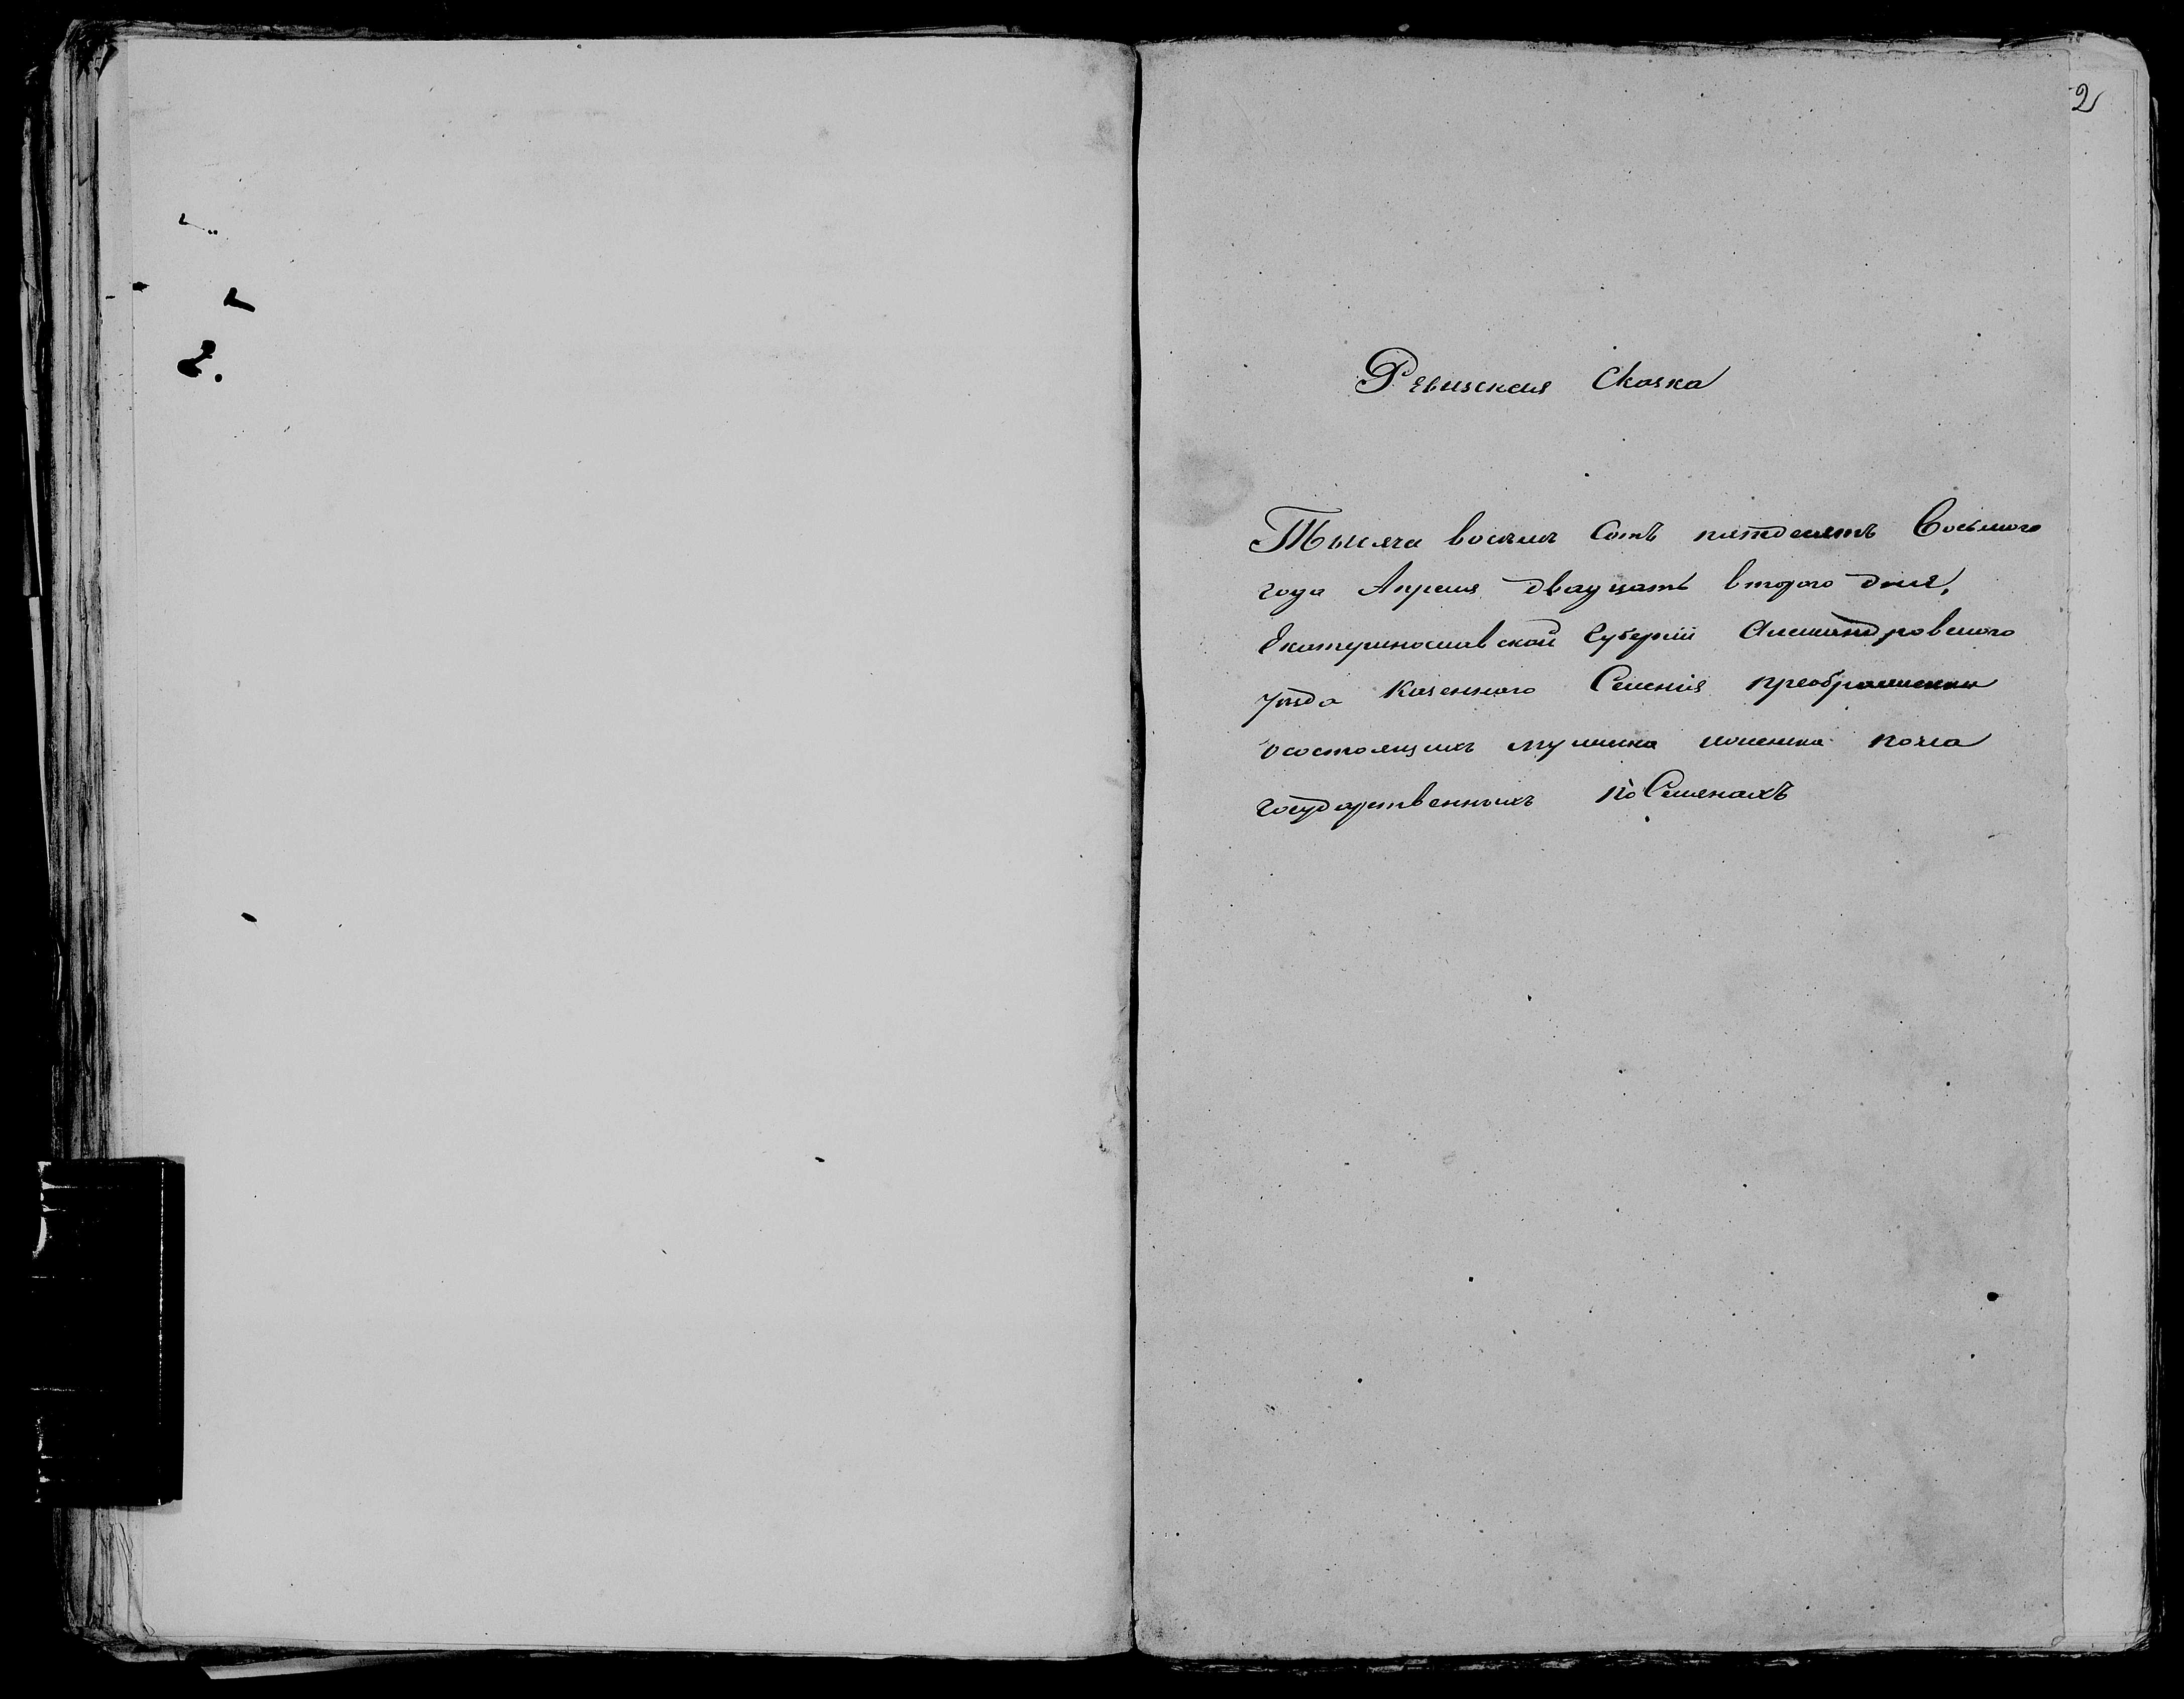 2
Ревизская Сказка
Тысяча восемь Сотъ пятдесятъ Восьмого
года Апреля двадцать второго дня,
Екатеринославской Губерніи Александровского
уезда Казенного Селенія преображенки
осостоящихъ мужеска иженска пола
государственныхъ поселянахъ